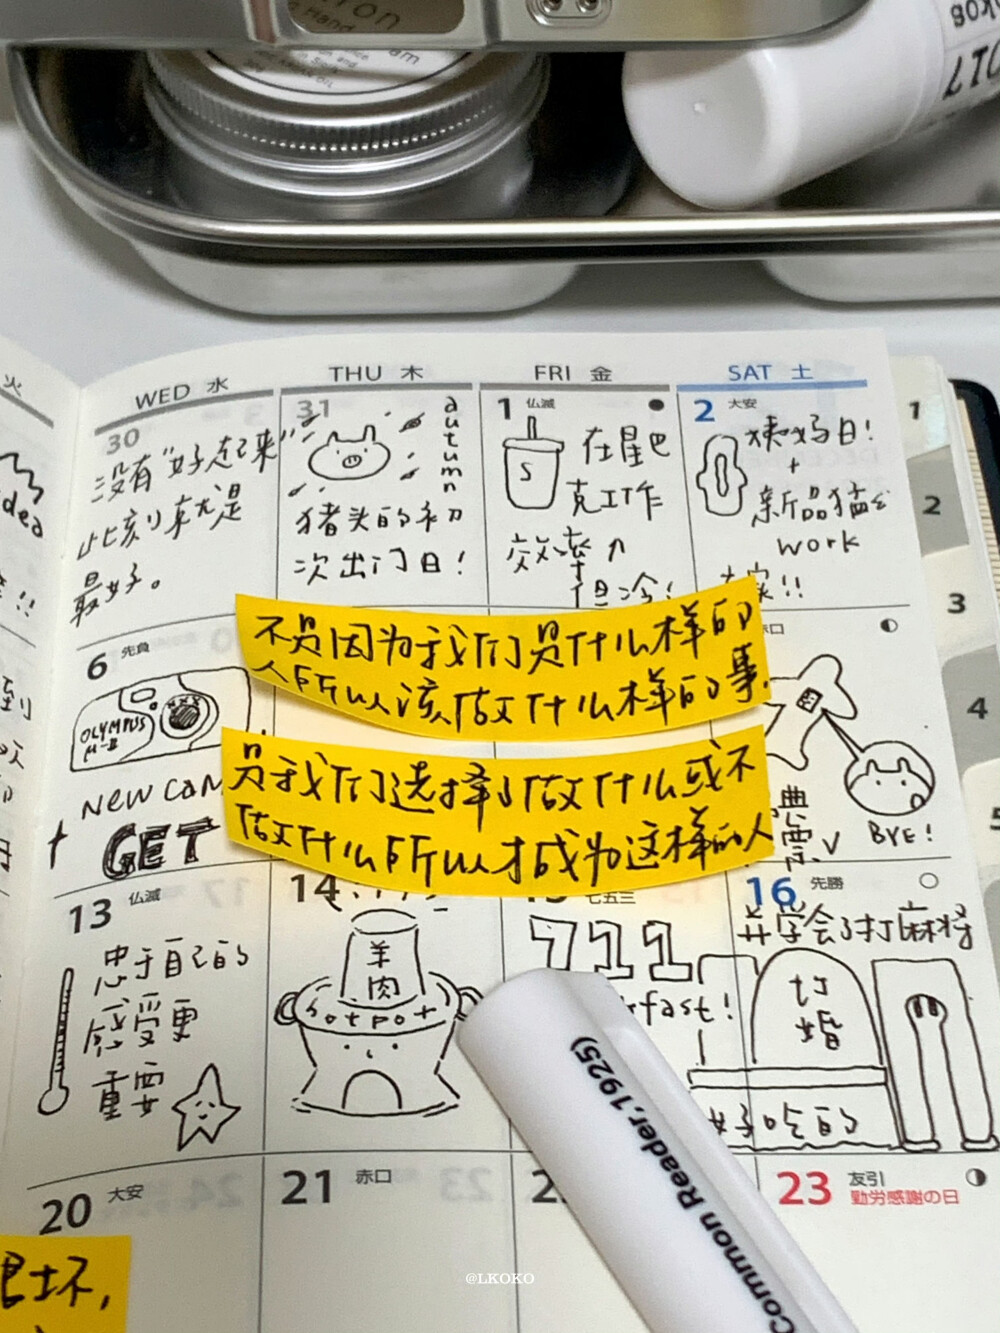 ron
Hand
am
017
火
WED 水
THU 木
FRI 金
SAT 土
dea
30
没有“好起来”
此刻就是
最好。
31
autumn
猪头的初
次出门日!
1 仏滅
S
在星巴
克工作
效率↑
但冷!
2 大安
姨妈日!
+
新品猫
work
!!
1
2
3
4
5
6 先負
OLYMPUS
μ-II
NEW CAM
GET
不是因为我们是什么样的
人所以该做什么样的事
是我们选择了做什么或不
做什么所以才成为这样的人
赤口
BYE!
到
13 仏滅
忠于自己的
感受更
重要
14
羊
肉
hotpot
15 七五三
711
fast!
16 先勝
学会了打麻将
订
婚
好吃的
20 大安
21 赤口
2
23 友引
勤労感謝の日
坏,
Common Reader,1925)
@LKOKO